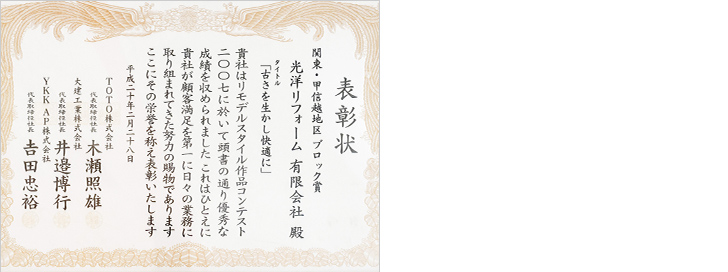 表彰状
関東・甲信越地区 ブロック賞
光洋リフォーム 有限会社 殿
タイトル
「古さを生かし快適に」
貴社はリモデルスタイル作品コンテスト
二〇〇七に於いて頭書の通り優秀な
成績を収められました これはひとえに
貴社が顧客満足を第一に日々の業務に
取り組まれてきた努力の賜物であります
ここにその栄誉を称え表彰いたします
平成二十年二月二十八日
TOTO株式会社
代表取締役社長 木瀬照雄
大建工業株式会社
代表取締役社長 井邉博行
YKK AP株式会社
代表取締役社長 吉田忠裕